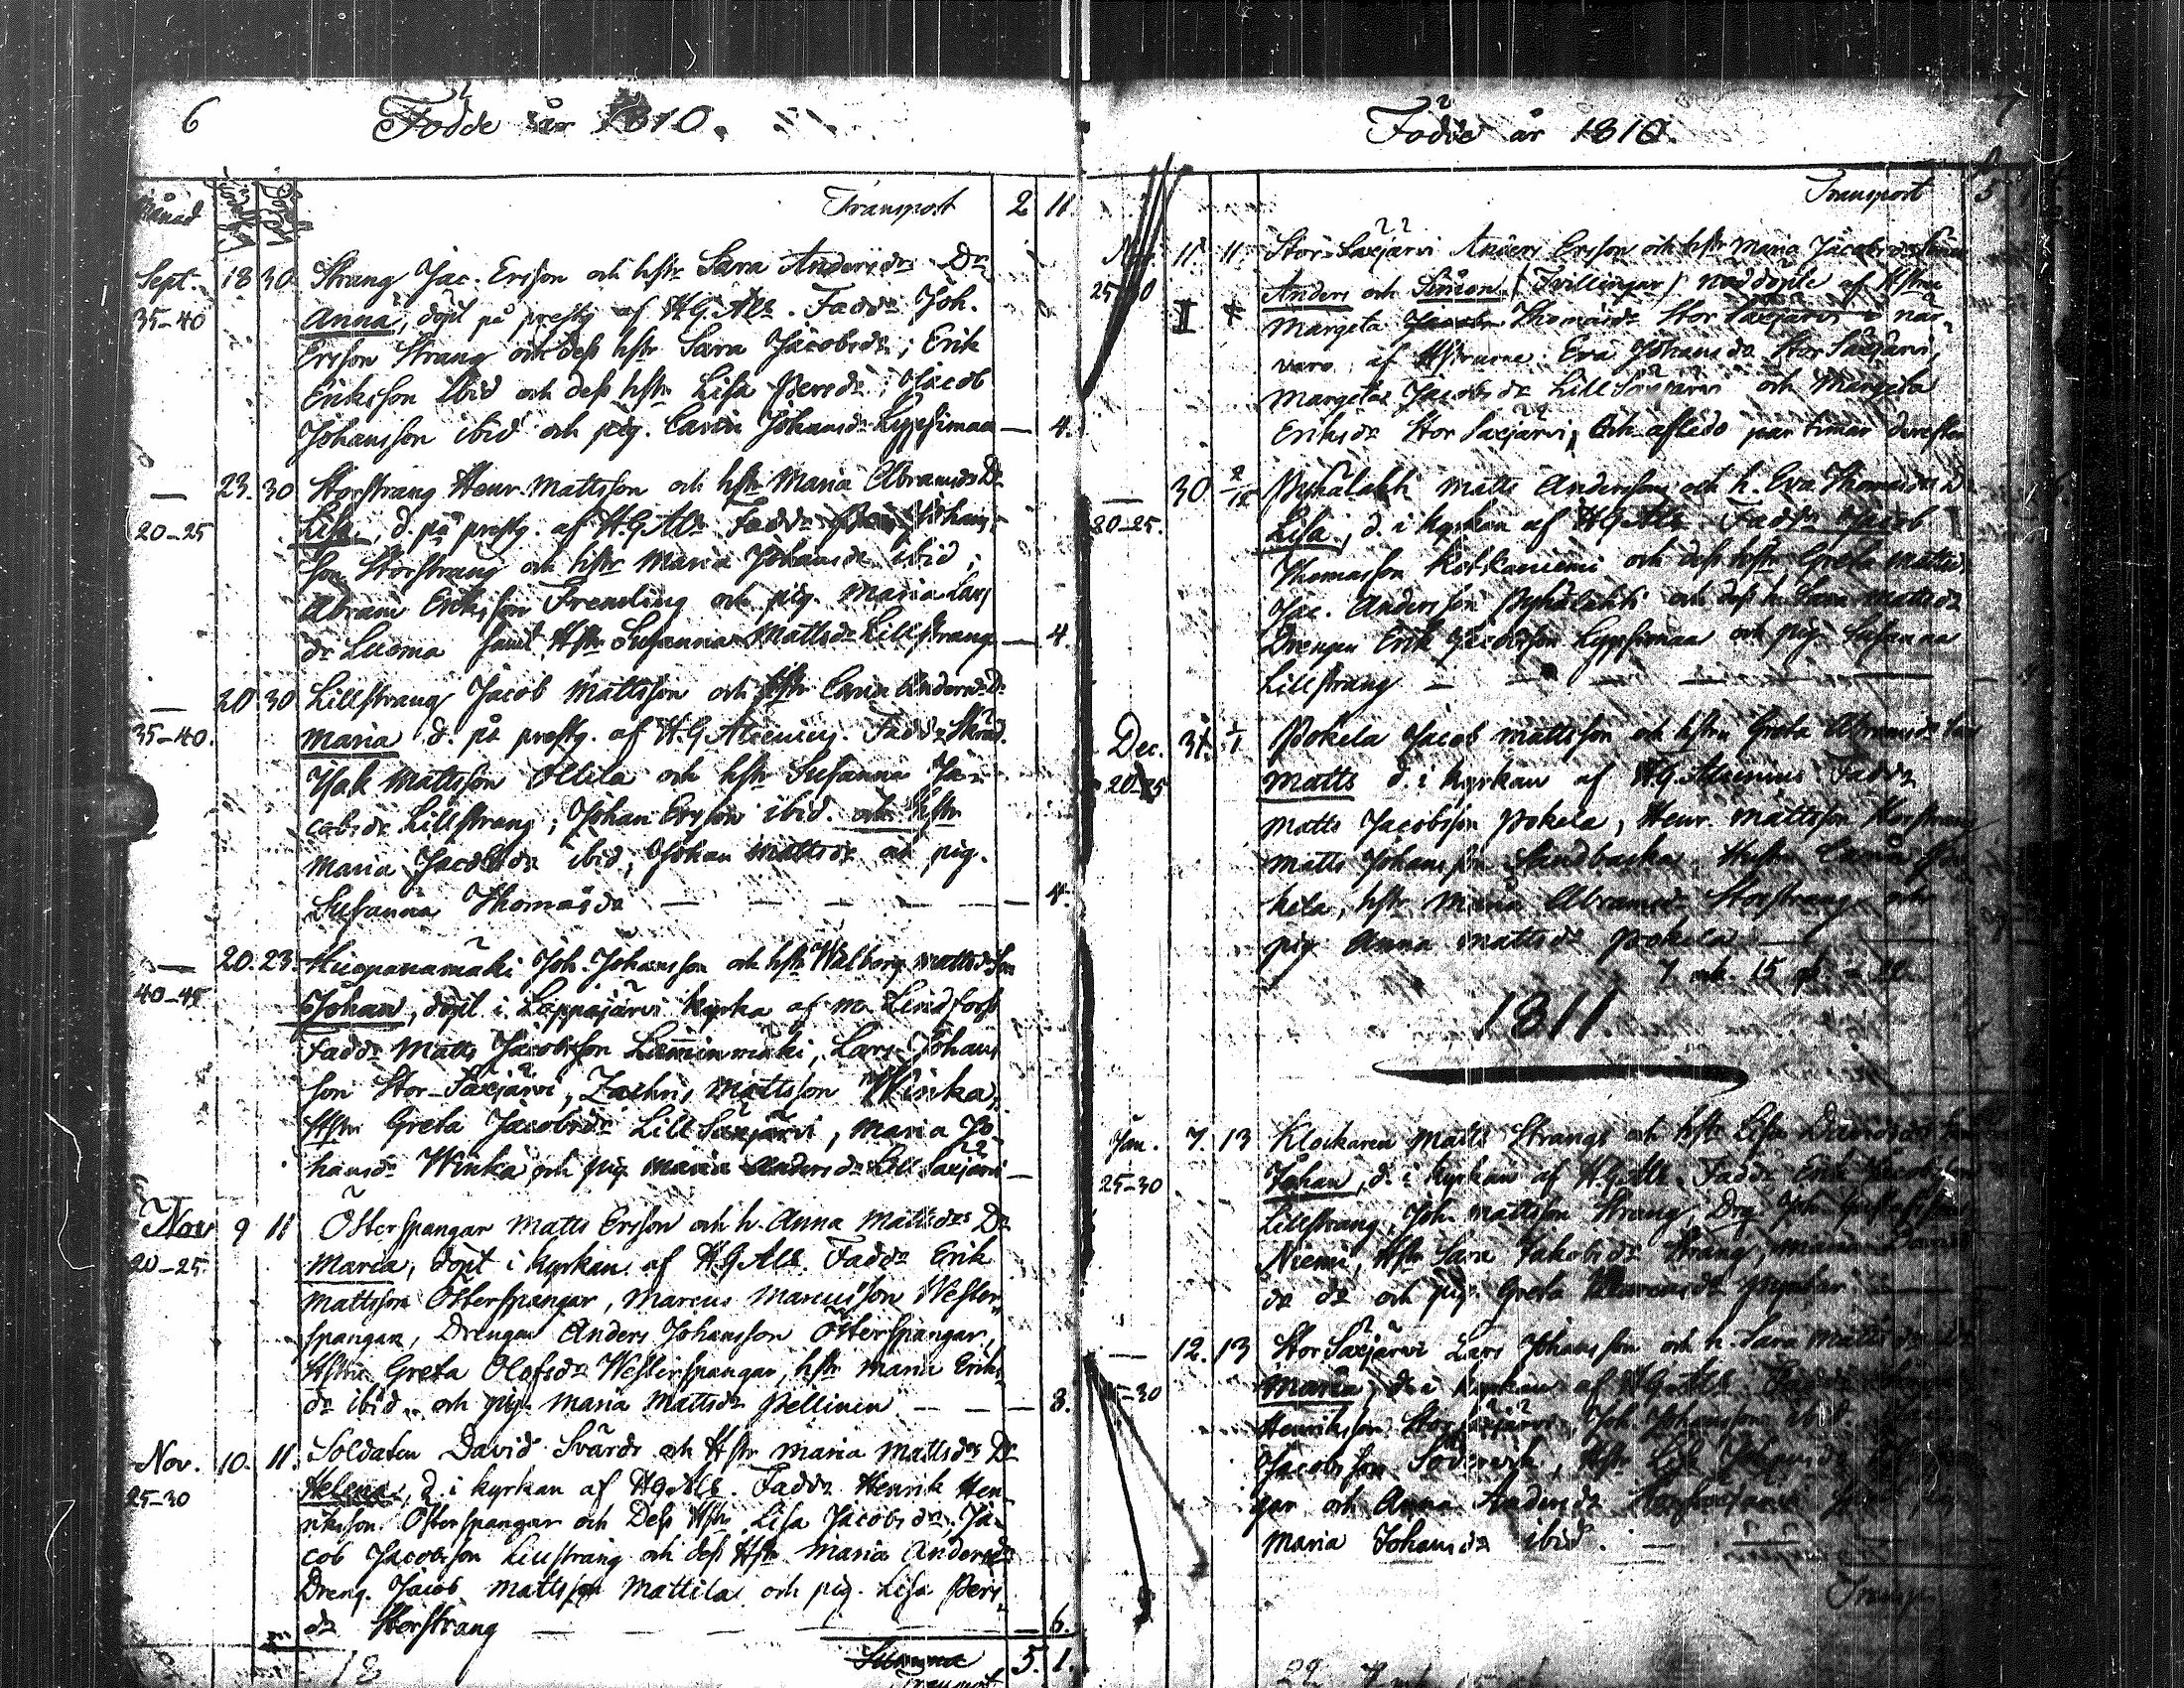 6
Födde år 1810.
Månad
Transport 2 11.
Sept. 18 30 Strang Jac. Ersson och hstr Sara Andersdr Dr
35-40 Anna, döpt på prestg af HG Alc. Faddr Joh.
Ersson Strang och dess hstr Sara Jacobsdr; Erik
Eriksson ibid och dess hstr Lisa Persdr; Jacob
Johansson ibid och pig. Carin Johansdr Kypsimaa — 4.
— 23. 30 Storstrang Henr. Mattsson och hstr Maria Abramsdr Dr
20-25 Lisa, d. på prestg. af HG Alc Faddr Johans-
son Storstrang och hstr Maria Johansdr ibid;
Abram Eriksson Fremling och pig. Maria Lars
dr Luoma samt Hstr Susanna Mattsdr Lillstrang — 4.
— 20 30 Lillstrang Jacob Mattsson och hstr Carin Andersdr Dr
35-40. Maria d. på prestg. af HG Alcenius. Faddr Skräd.
Isak Mattsson Ollila och hstr Susanna Ja-
cobsdr Lillstrang; Johan Ersson ibid. och hstr
Maria Jacobsdr ibid; Johan Mattsdr och pig.
Susanna Thomasdr — — — — 4.
— 20. 23. Huopanamäki Joh. Johansson och hstr Walborg Mattsdr Son
40-45 Johan, döpt i Lappajärvi kyrka af m Lindfors
Faddr Matts Jacobsson Lamminmäki, Lars Johans
son Stor-Saxjärvi, Zachris Mattsson Winka,
Hstr Greta Jacobsdr Lill Saxjärvi, Maria Jo
hansdr Winka och pig Maria Andersdr Lill Saxjärvi —
Nov 9 11 Österspangar Matts Ersson och h. Anna Mattsdr Dr
20-25 Maria, döpt i kyrkan af HG Alc. Faddr Erik
Mattsson Österspangar, Marcus Marcusson Wester-
spangar, Drengen Anders Johansson Österspangar,
Hstru Greta Olofsdr Westerspangar, hstr Maria Eriks
dr ibid. och pig. Maria Mattsdr Pellinen — — 8.
Nov. 10. 11. Soldaten David Svärds och Hstr Maria Mattsdr Dr
25-30 Helena, d. i kyrkan af HG Alc. Faddr Henrik Hen
riksson Österspangar och Dess Hstr Lisa Jacobsdr, Ja-
cob Jacobsson Lillstrang och dess Hstr Maria Andersdr
Dreng. Jacob Mattsson Mattila och pig. Lisa Pers
dr Storstrang — — — — 6.
18 5. 1.
Transport
7
Födde år 1810.
Transport 5
Nov. 11 11. Stor-Saxjärvi Anders Ersson och hstr Maria Jacobsdr Söner
25-30 II Anders och Simon (Tvillingar) nöddöpte af Hstru
Margeta Thomasdr Stor Saxjärvi i när-
varo af Hstruna Eva Johansdr Stor Saxjärvi,
Margeta Jacobsdr Lill Saxjärvi och Margeta
Eriksdr Stor Saxjärvi, Och afledo par timar derefter
— 30 2/12 Pyhälahti Matts Andersson och h. Eva Thomasdr D
20-25. Lisa, d. i kyrkan af HG Alc Faddr Jacob
Thomasson Koskaniemi och dess hstr Greta Mattsd,
Jac. Andersson Pyhälahti och dess h. Sara Mattsdr
Drengen Erik Jacobsson Kypsimaa och pig Susanna
Lillstrang — — — — —
Dec. 31. 1/1 Pokela Jacob Mattsson och hstru Greta Abramsdr Son
20-25 Matts d. i kyrkan af HG Alcenius Faddr
Matts Jacobsson Pokela, Henr. Mattsson Storstrang
Matts Johansson Sandbacka, Hustr
kela, hstr Maria Abramsdr Storstrang och
pig Anna Mattsdr Pokela —
7 mk 15 qk = 22
1811.
Jan. 7. 13 Klockaren Matts Strangs och hstr Lisa Davidsdr Son
25-30 Johan, d. i kyrkan af HG Alc. Faddr Erik Jacobsson
Lillstrang, Joh. Mattsson Strang, Drg Joh. Gustafsson
Niemi, Hstr Sara Jakobsdr Strang, Maria Davids
dr och pig Greta Marcusdr
— 12. 13 Stor Saxjärvi Lars Johansson och h. Sara Mattsdr
-30 Maria, d. i kyrkan af HG Alc
Henriksson Stor Saxjärvi, Joh. Johansson ibid.
Jacobsson Hstr Lisa Johansdr
gar och Anna Andersdr
Maria Johansdr ibid. — —
Transp.